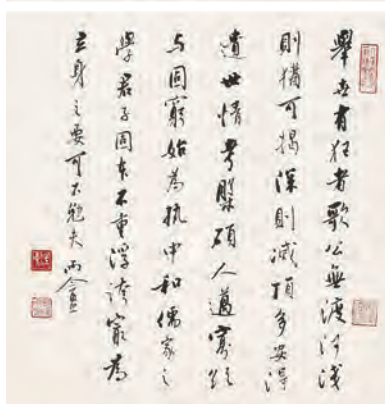 舉世有狂者歌公無渡河淺
則猶可揭深則滅頂多安得
遺世情考槃碩人
与固窮始為執中和儒家之
學君子固本不重浮誇最為
立身之要可不勉夫